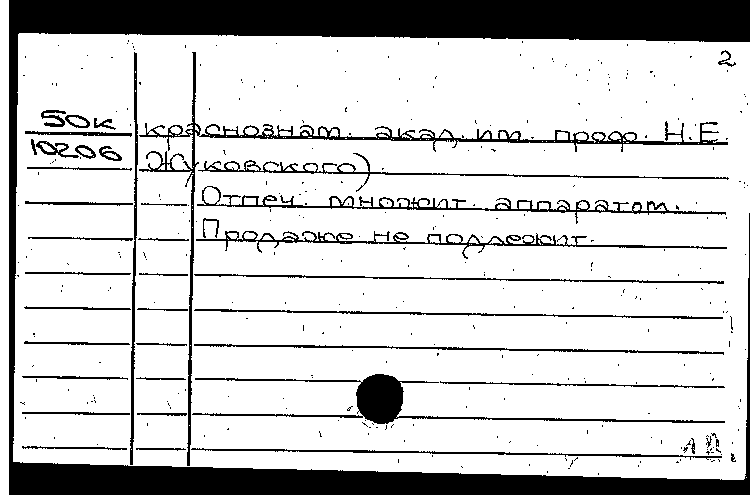 2
50к краснознам. акад. им. проф. Н.Е.
10206 Жуковского).
Отпеч. множит. аппаратом.
Продаже не подлежит.